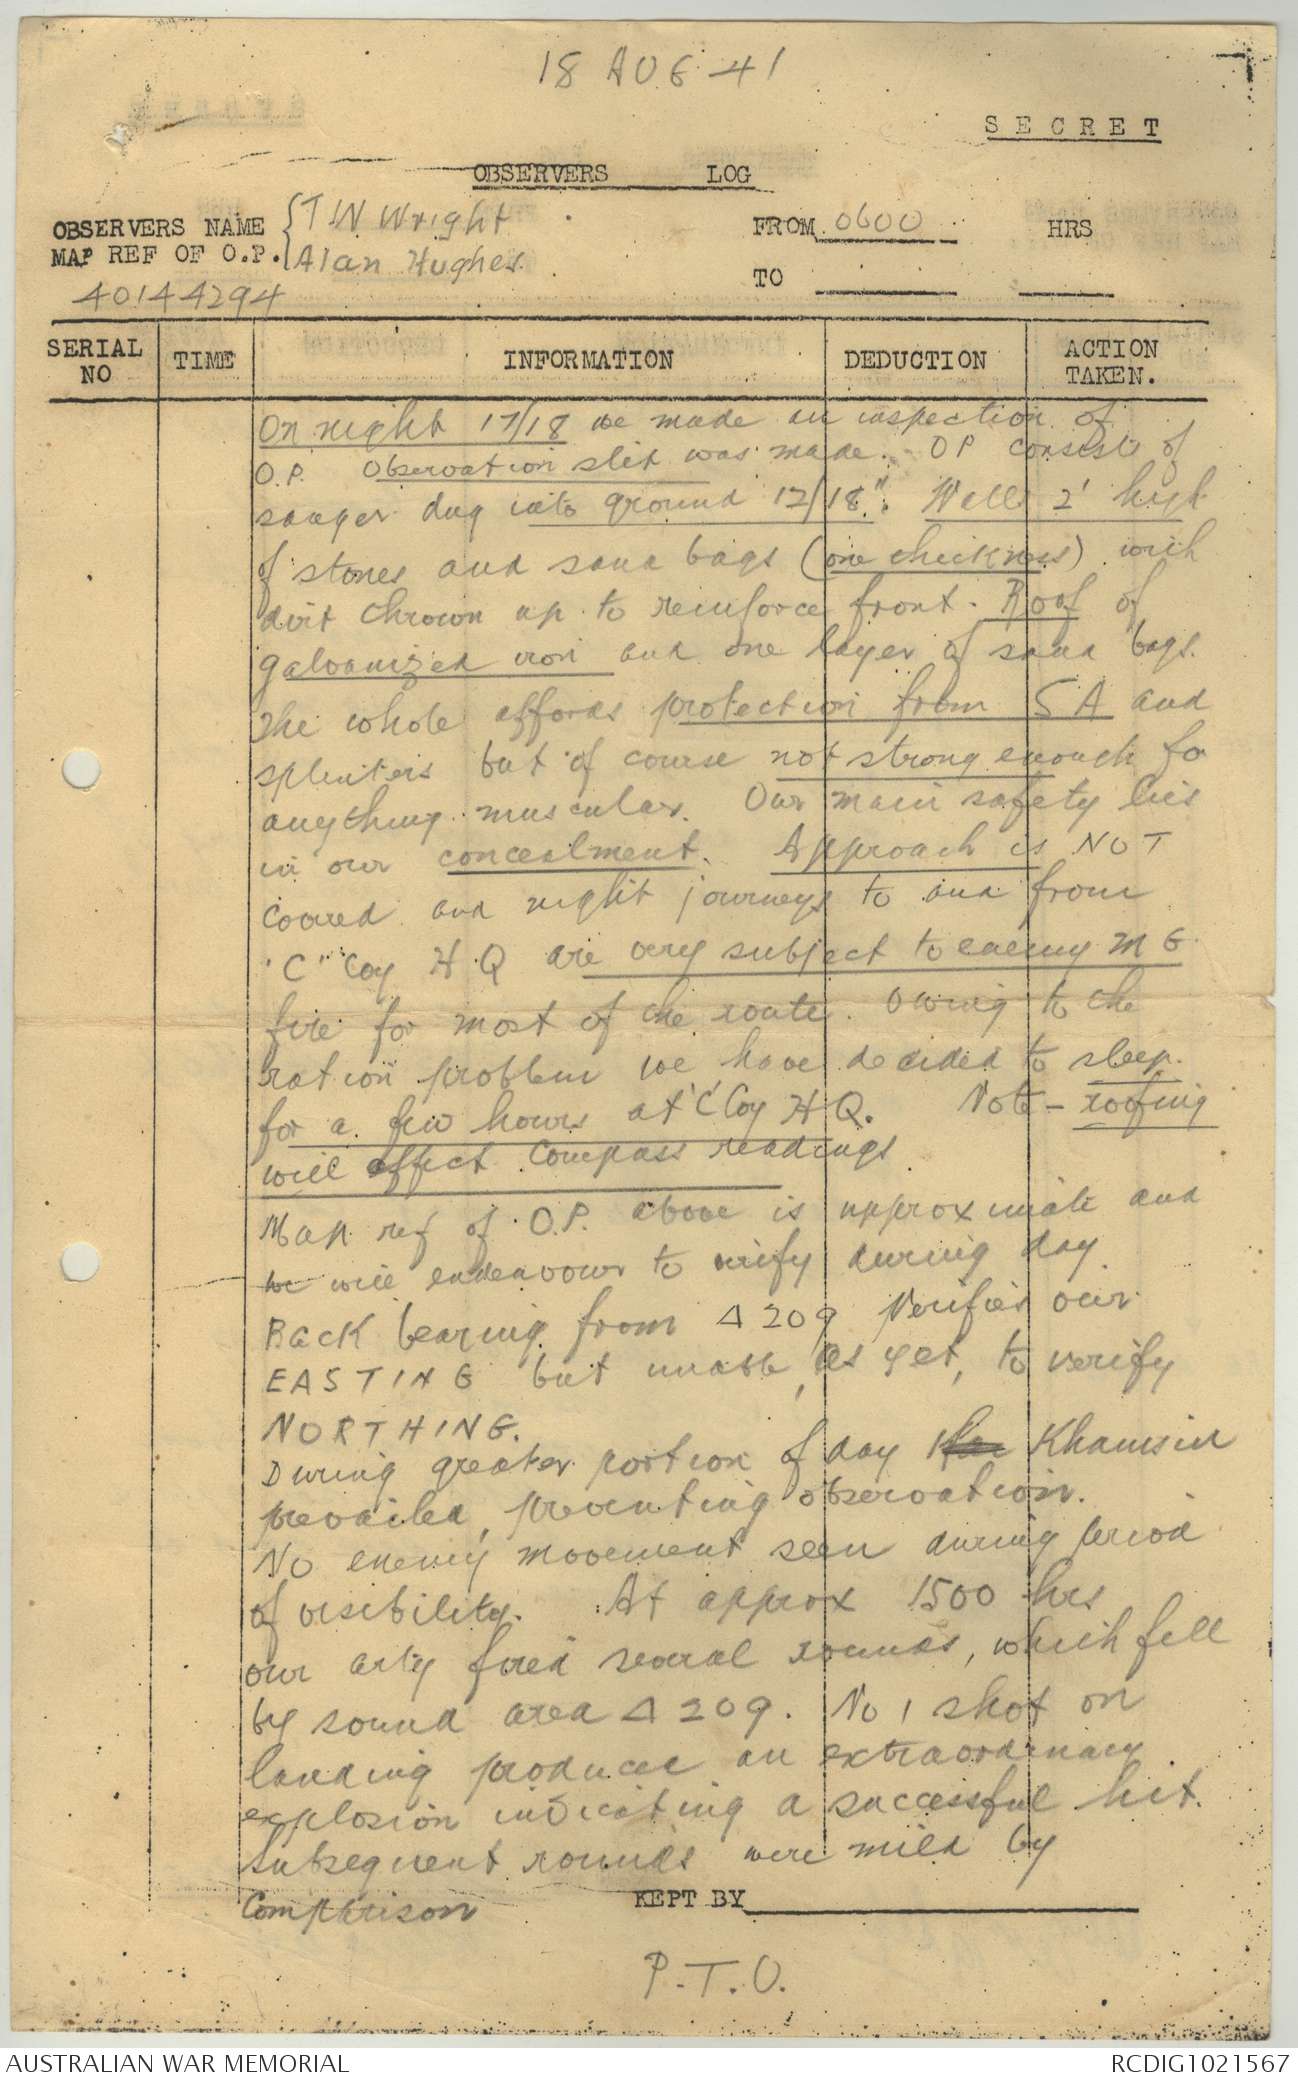 18 AUG 41
SECRET
OBSERVERS LOG
OBSERVERS NAME { T W Wright FROM 0600 HRS
MAP REF OF O.P. { Alan Hughes
TO
40144294
SERIAL NO TIME INFORMATION DEDUCTION ACTION TAKEN.
On night 17/18 we made an inspection of
O.P. Observation slit was made. OP consists of
sanger dug into ground 12/18". Walls 2' high
of stones and sand bags (one thickness) with
dirt thrown up to reinforce front. Roof of
galvanized iron and one layer of sand bags.
The whole affords protection from S A and
splinters but of course not strong enough for
anything muscular. Our main safety lies
in our concealment. Approach is NOT
covered and night journeys to and from
"C" Coy H Q are very subject to enemy M G
fire for most of the route. Owing to the
ration problem we have decided to sleep
for a few hours at 'C' Coy H Q. Note - roofing
will affect compass readings
Map ref of O.P. above is approximate and
we will endeavour to verify during day
Back bearing from Δ 209 Verifies our
EASTING but unable, as yet, to verify
NORTHING.
During greater portion of day Khamsin
prevailed, preventing observation.
No enemy movement seen during period
of visibility. At approx 1500 hrs
our arty fired several rounds, which fell
by sound area Δ 209. No 1 shot on
landing produced an extraordinary
explosion indicating a successful hit.
Subsequent rounds were mild by
Comparison
KEPT BY
P.T.O.
AUSTRALIAN WAR MEMORIAL RCDIG1021567